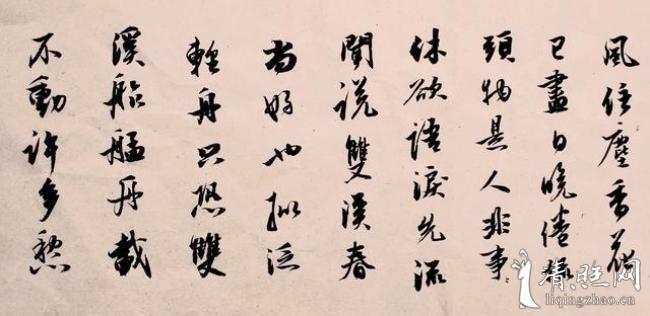 風住塵香花
已盡日晚倦梳
頭物是人非事
休欲語淚先流
聞說雙溪春
尚好也擬泛
輕舟只恐雙
溪舴艋舟載
不動許多愁
liqingzhao.cn